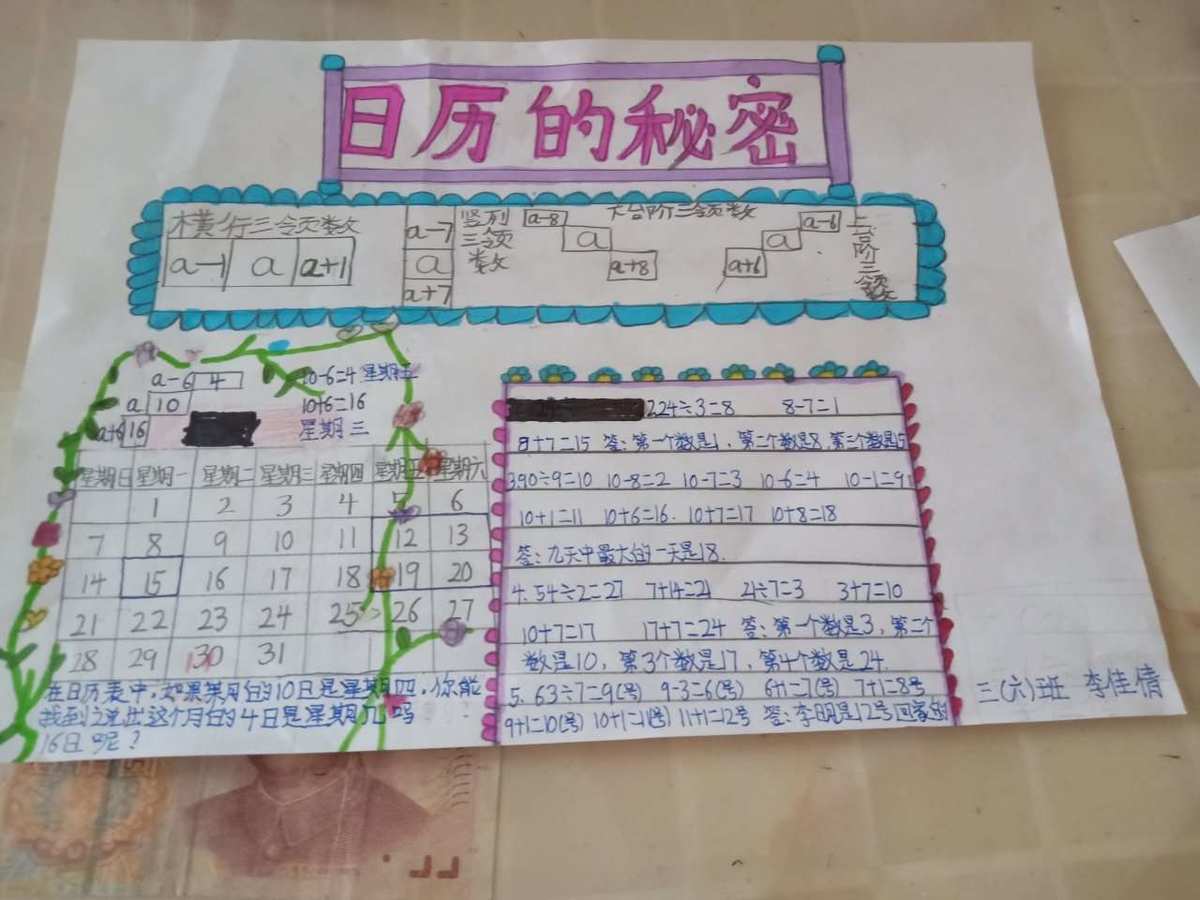 日历的秘密
横行三领页数
a-1 a a+1
a-7
a
a+7
竖列
三领
数
a-8
a
a+8
下台阶三领数
a-6
a
a+6
上台阶三领数
a-6 4
a 10
a+6 16
10-6=4 星期五
10+6=16
星期三
星期日 星期一 星期二 星期三 星期四 星期五 星期六
1 2 3 4 5 6
7 8 9 10 11 12 13
14 15 16 17 18 19 20
21 22 23 24 25 26 27
28 29 30 31
在日历表中,如果某月的10日是星期四,你能
找到之说出这个月的4日是星期几吗
16日呢?
2.24÷3=8 8-7=1
8+7=15 答:第一个数是1,第二个数是8,第三个数是15
3.90÷9=10 10-8=2 10-7=3 10-6=4 10-1=9
10+1=11 10+6=16. 10+7=17 10+8=18
答:九天中最大的一天是18.
4.54÷2=27 7+14=21 21÷7=3 3+7=10
10+7=17 17+7=24 答:第一个数是3,第二个
数是10,第3个数是17,第4个数是24.
5.63÷7=9(号) 9-3=6(号) 6+1=7(号) 7+1=8号
9+1=10(号) 10+1=11(号) 11+1=12号 答:李明是12号回家的
三(六)班 李佳倩